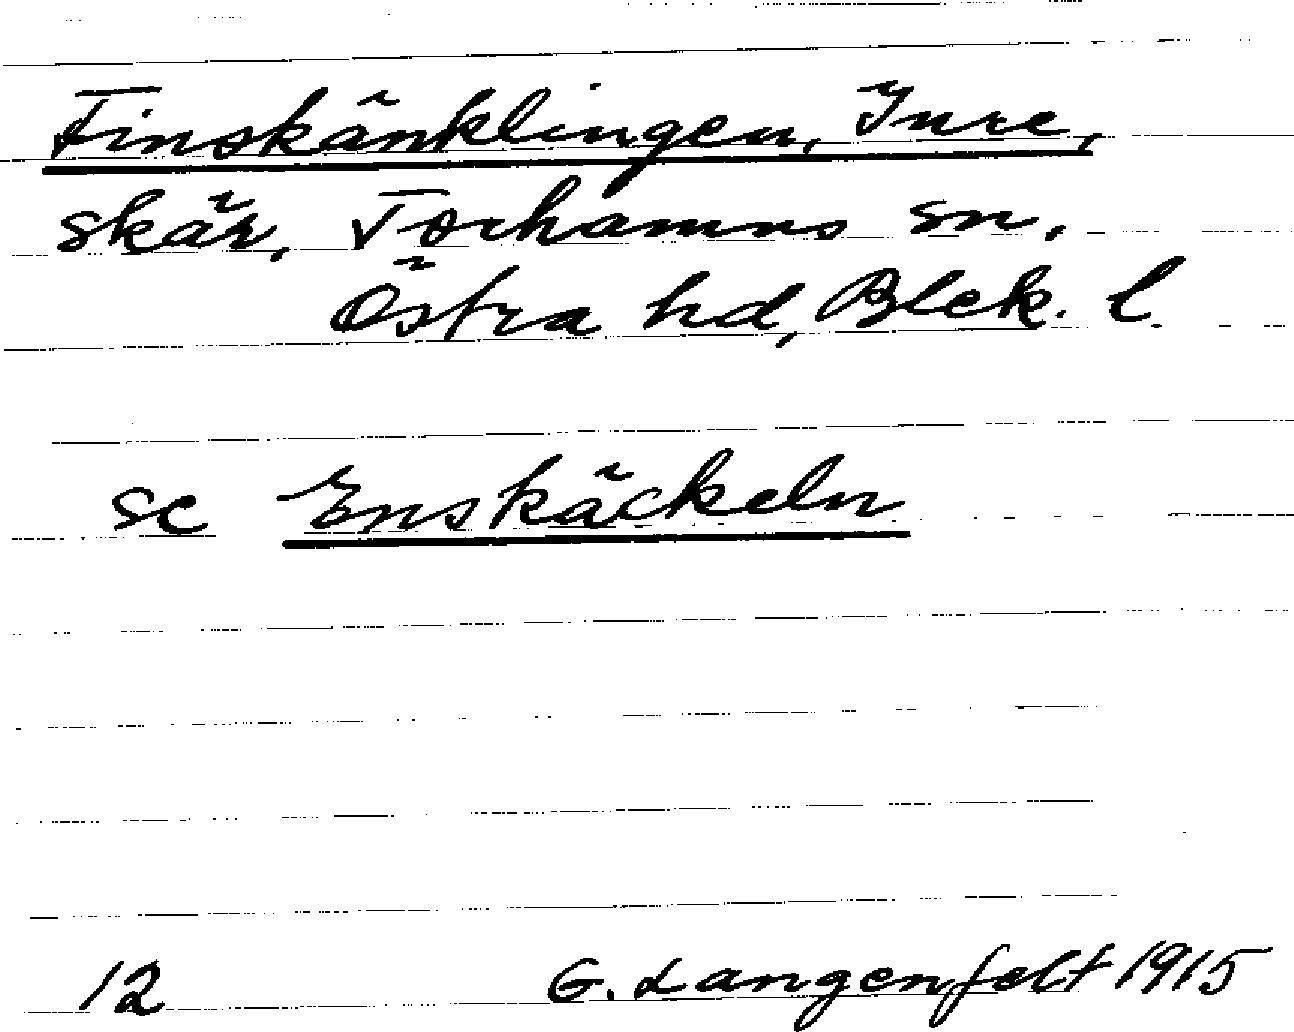 Finskänklingen, Inre,
skär, Torhamns sn.
Östra hd, Blek. l.
se Enskäckeln
12 G. Langenfelt 1915